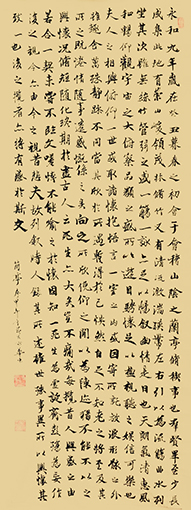 永和九年歲在癸丑暮春之初會于會稽山陰之蘭亭脩稧事也群賢畢至少長
咸集此地有崇山峻領茂林脩竹又有清流激湍暎帶左右引以為流觴曲水列
坐其次雖無絲竹管弦之盛一觴一詠亦足以暢敘幽情是日也天朗氣清惠風
和暢仰觀宇宙之大俯察品類之盛所以遊目騁懷足以極視聽之娛信可樂也
夫人之相與俯仰一世或取諸懷抱悟言一室之內或因寄所託放浪形骸之外
雖趣舍萬殊靜躁不同當其欣於所遇蹔得於己怏然自足不知老之將至及其
所之既惓情隨事遷感慨係之矣向之所欣俛仰之間以為陳迹猶不能不以之
興懷況脩短隨化終期於盡古人云死生亦大矣豈不痛哉每攬昔人興感之由
若合一契未嘗不臨文嗟悼不能喻之於懷固知一死生為虛誕齊彭殤為妄作
後之視今亦由今之視昔悲夫故列敘時人錄其所述雖世殊事異所以興懷其
致一也後之覽者亦將有感於斯文